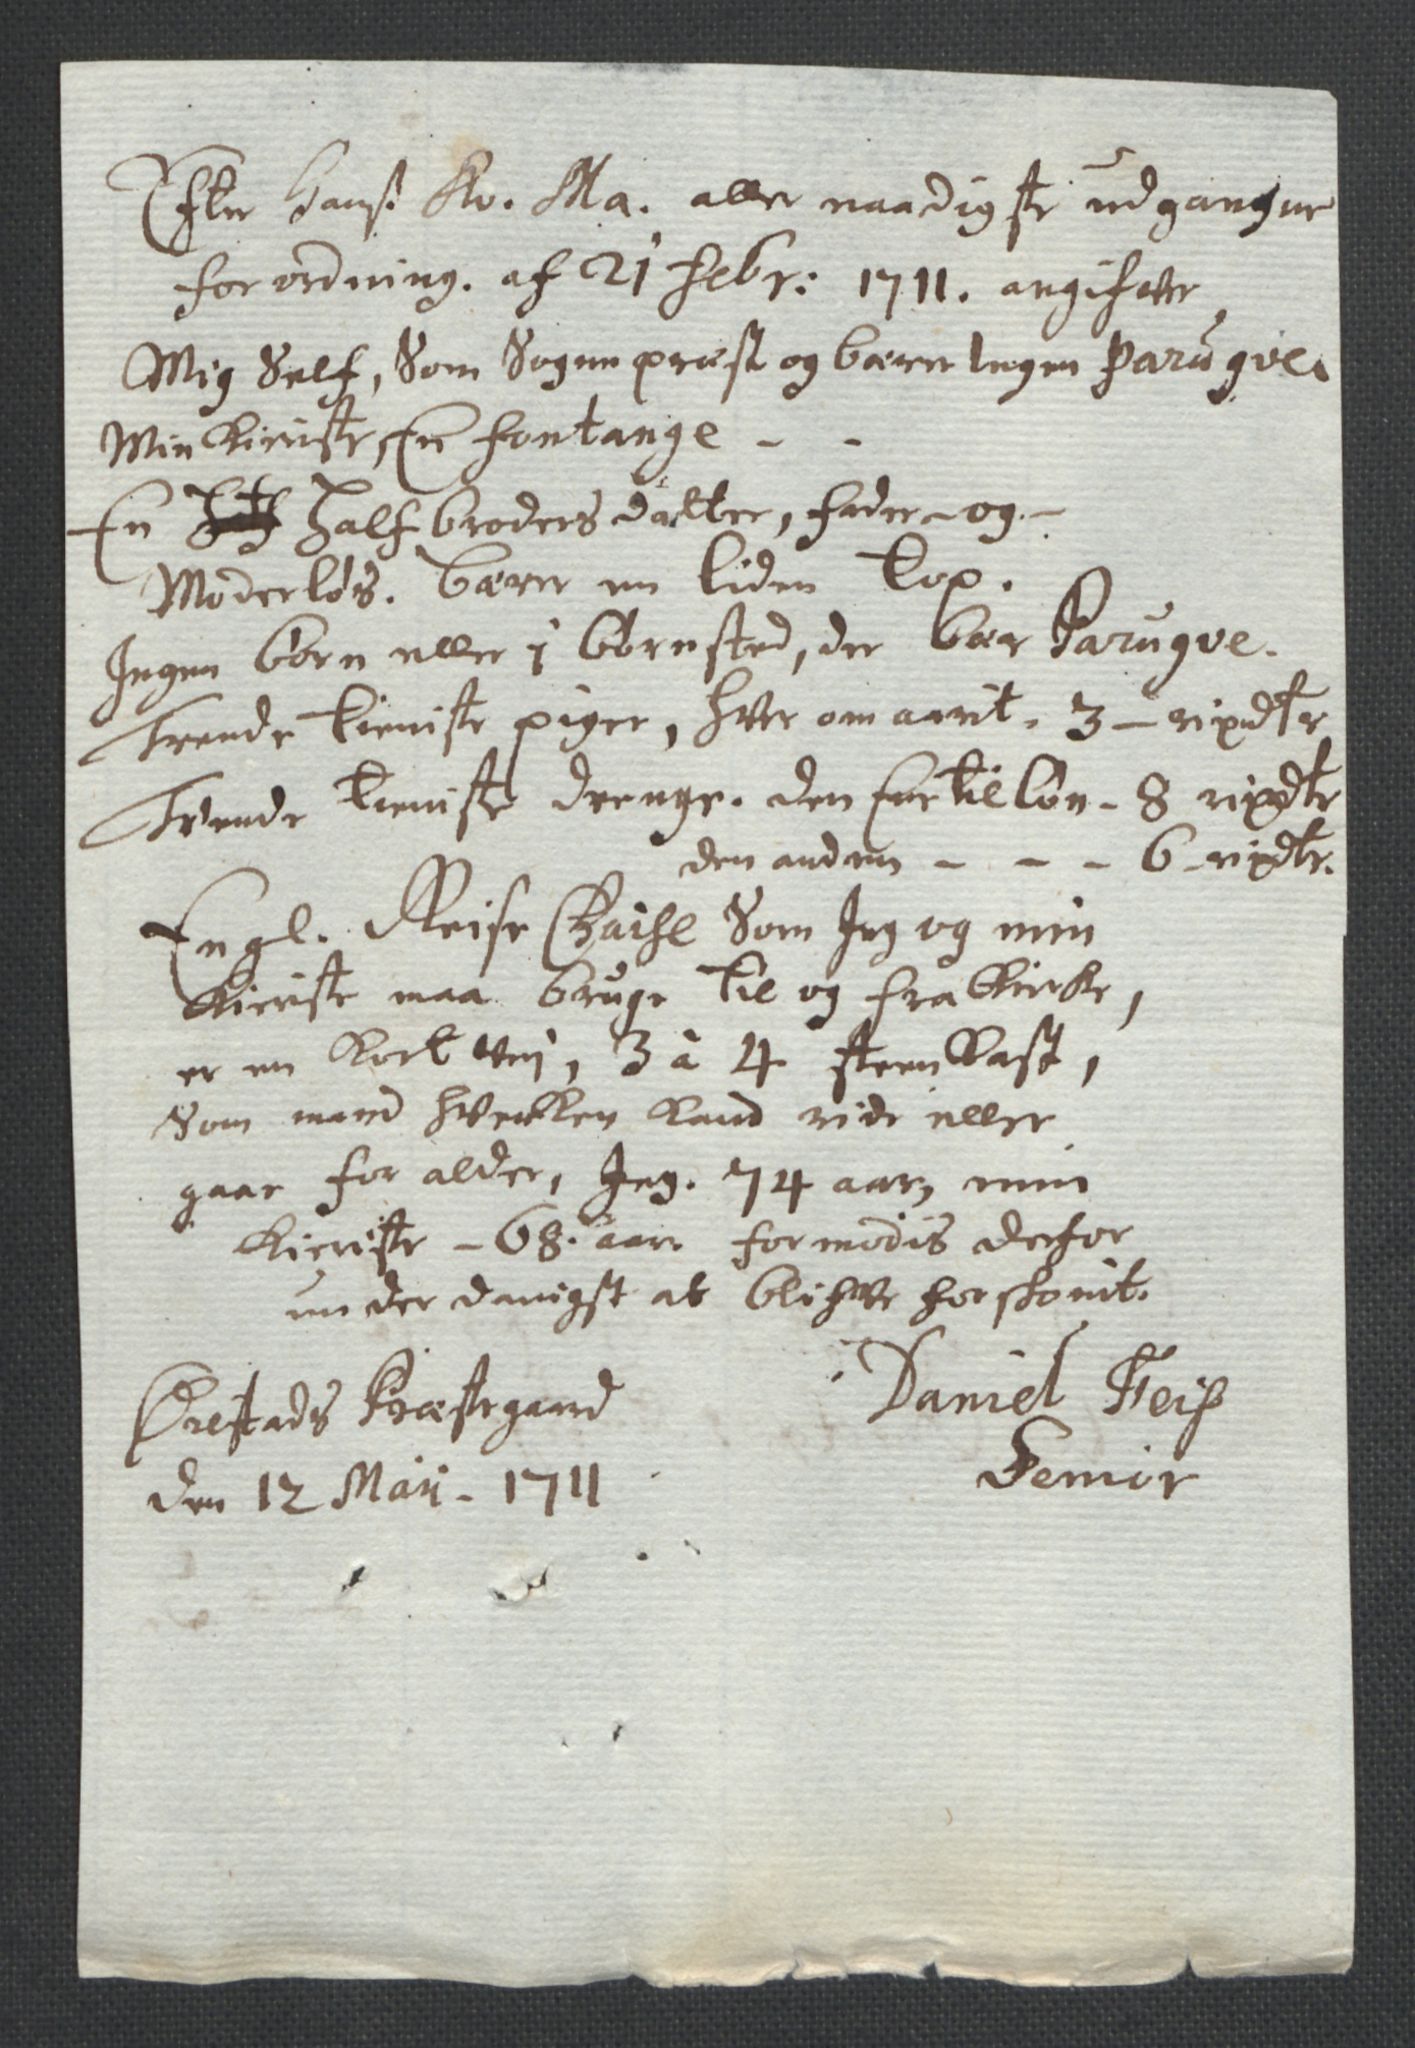 Efter Hans. Ko. Ma. aller naadigste udgangne
forordning. af 21 febr: 1711. angifver
Mig Self, Som Sognepræst og bærer Ingen Parugve.
Min Kieriste, En fontange - -
En Half broders datter, fader - og -
Moderløs. bærer en liden top.
Ingen børn eller i børnsted, der bær Parugve.
Trende tieniste piger, hver om aarit. 3 - rixdlr
Tvende tieniste drenge. den Ene til løn - 8 rixdlr
den anden - - - 6 - rixdlr.
Engl. Reise Som Jeg og min
Kieriste maa bruge til og fra Kircke,
er en kort vei, 3 à 4 steenkast,
Som mand hvercken kand ride eller
gaae for alder, Jeg. 74 aar, min
Kieriste - 68. aar. formodis derfor
underdanigst at blifve forskonit.
Præstegaard
den 12 Maij - 1711
Daniel
Senior